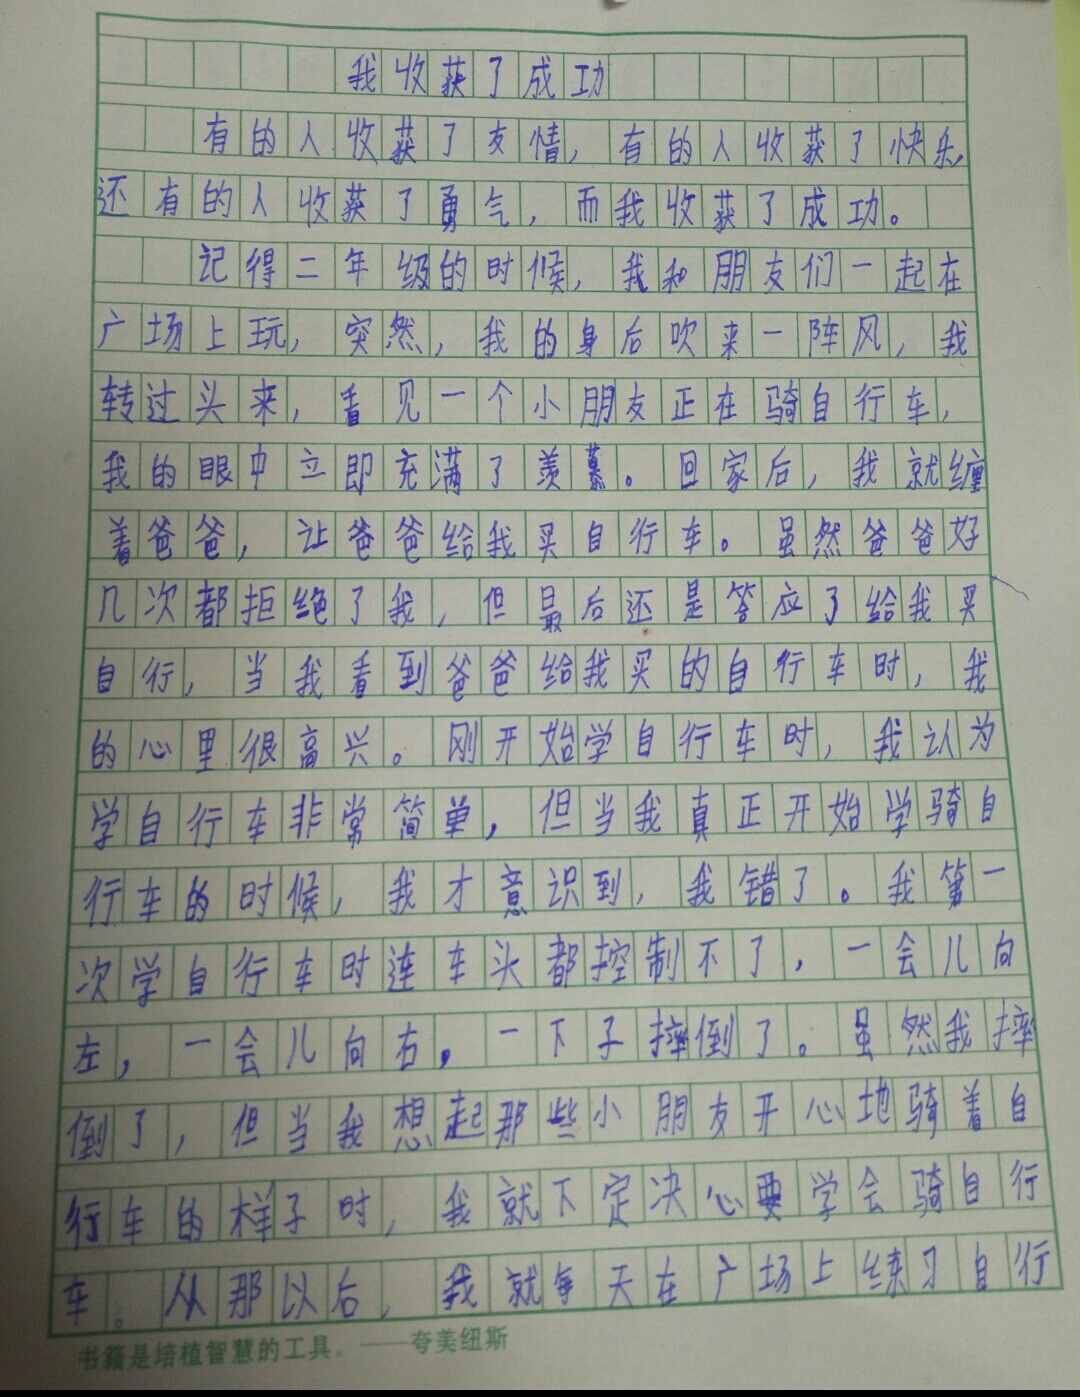 我收获了成功
有的人收获了友情，有的人收获了快乐，
还有的人收获了勇气，而我收获了成功。
记得二年级的时候，我和朋友们一起在
广场上玩，突然，我的身后吹来一阵风，我
转过头来，看见一个小朋友正在骑自行车，
我的眼中立即充满了羡慕。回家后，我就缠
着爸爸，让爸爸给我买自行车。虽然爸爸好
几次都拒绝了我，但最后还是答应了给我买
自行，当我看到爸爸给我买的自行车时，我
的心里很高兴。刚开始学自行车时，我认为
学自行车非常简单，但当我真正开始学骑自
行车的时候，我才意识到，我错了。我第一
次学自行车时连车头都控制不了，一会儿向
左，一会儿向右，一下子摔倒了。虽然我摔
倒了，但当我想起那些小朋友开心地骑着自
行车的样子时，我就下定决心要学会骑自行
车。从那以后，我就每天在广场上练习自行
书籍是培植智慧的工具。——夸美纽斯